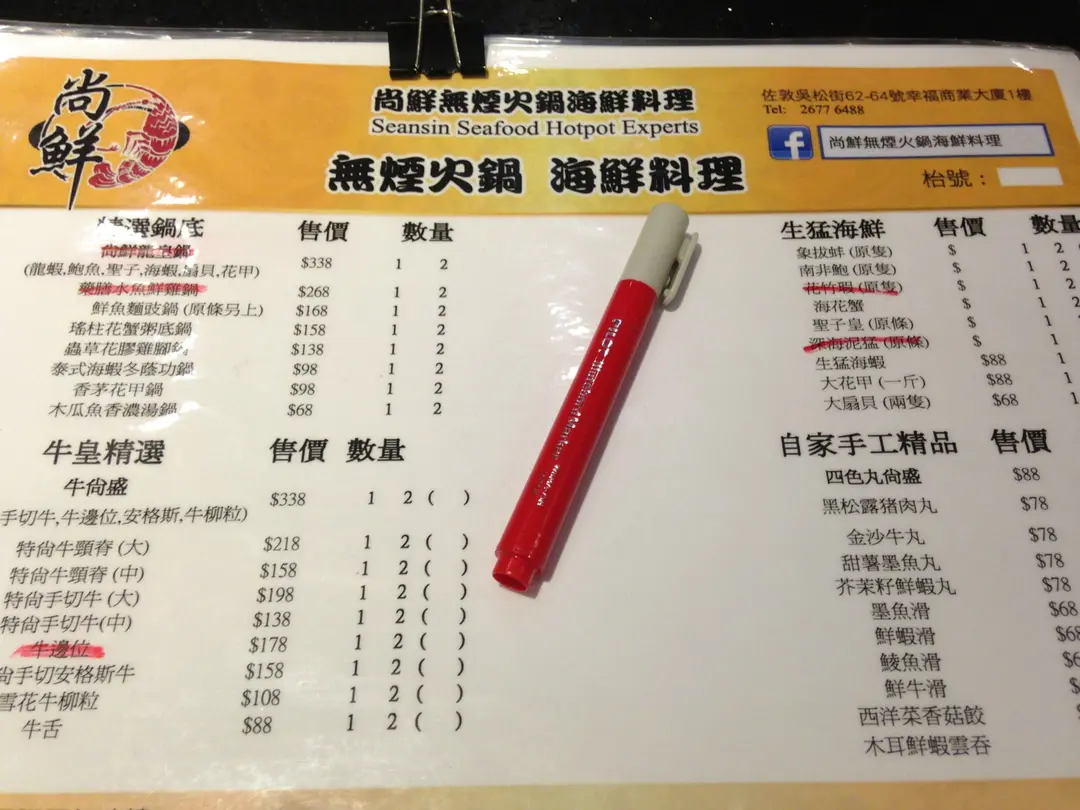 尚鮮
尚鮮無煙火鍋海鮮料理
Seansin Seafood Hotpot Experts
無煙火鍋 海鮮料理
佐敦吳松街62-64號幸福商業大廈1樓
Tel: 2677 6488
f 尚鮮無煙火鍋海鮮料理
枱號：
精選鍋底 售價 數量
尚鮮龍皇鍋
(龍蝦,鮑魚,聖子,海蝦,扇貝,花甲) $338 1 2
藥膳水魚鮮雞鍋 $268 1 2
鮮魚麵豉鍋 (原條另上) $168 1 2
瑤柱花蟹粥底鍋 $158 1 2
蟲草花膠雞腳鍋 $138 1 2
泰式海蝦冬蔭功鍋 $98 1 2
香茅花甲鍋 $98 1 2
木瓜魚香濃湯鍋 $68 1 2
牛皇精選 售價 數量
牛尙盛
手切牛,牛邊位,安格斯,牛柳粒) $338 1 2 ( )
特尙牛頸脊 (大) $218 1 2 ( )
特尙牛頸脊 (中) $158 1 2 ( )
特尙手切牛 (大) $198 1 2 ( )
特尙手切牛(中) $138 1 2 ( )
牛邊位 $178 1 2 ( )
尙手切安格斯牛 $158 1 2 ( )
雪花牛柳粒 $108 1 2 ( )
牛舌 $88 1 2 ( )
PILOT
生猛海鮮 售價 數量
象拔蚌 (原隻) $ 1 2
南非鮑 (原隻) $ 1 2
花竹蝦 (原隻) $ 1 2
海花蟹 $ 1 2
聖子皇 (原條) $ 1
深海泥猛 (原條) $ 1
生猛海蝦 $88 1
大花甲 (一斤) $88 1
大扇貝 (兩隻) $68 1
自家手工精品 售價
四色丸尙盛 $88
黑松露猪肉丸 $78
金沙牛丸 $78
甜薯墨魚丸 $78
芥茉籽鮮蝦丸 $78
墨魚滑 $68
鮮蝦滑 $68
鯪魚滑
鮮牛滑
西洋菜香菇餃
木耳鮮蝦雲吞